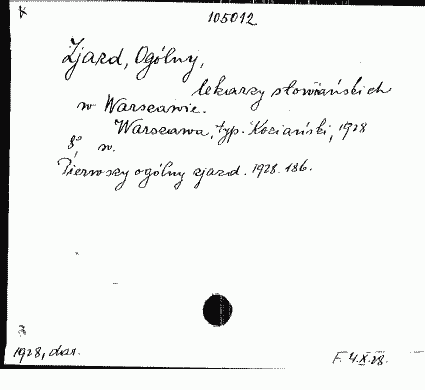 105012
Zjazd, Ogólny,
lekarzy słowiańskich
w Warszawie.
Warszawa, typ. Koziański, 1928
8°, w.
Pierwszy ogólny zjazd. 1928. 186.
1928, dar.
F. 4.X.28.